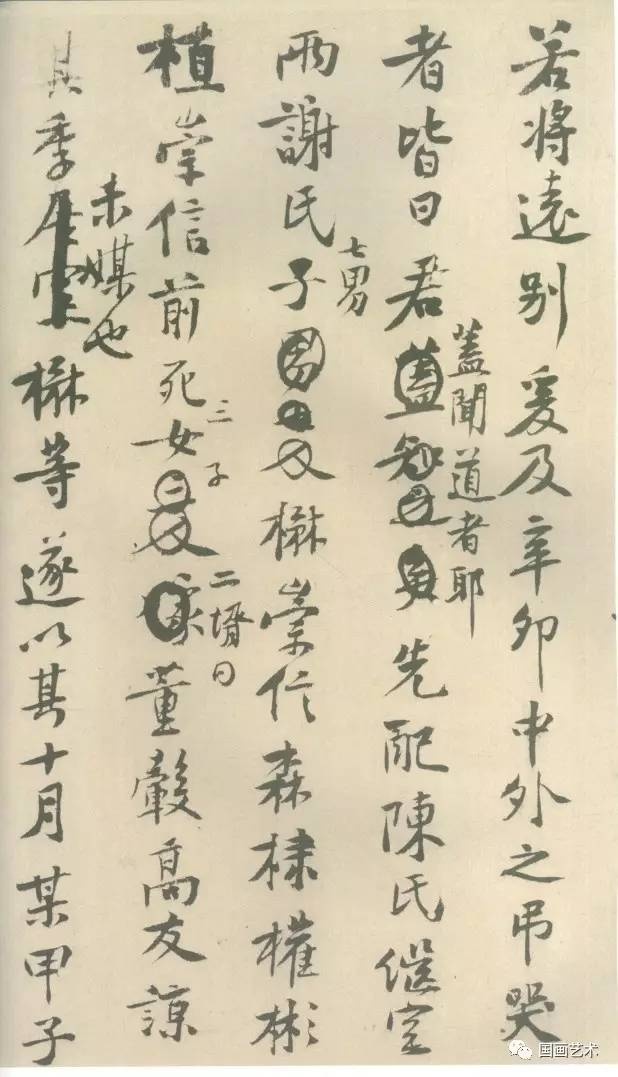 若將遠別爰及辛卯中外之弔哭
蓋聞道者耶
者皆曰君蓋先配陳氏繼室
七男
兩謝氏子楙崇信森棣權彬
三子
二壻曰
植崇信前死女董轂高友諒
未媒也
其季楙等遂以其十月某甲子
国画艺术